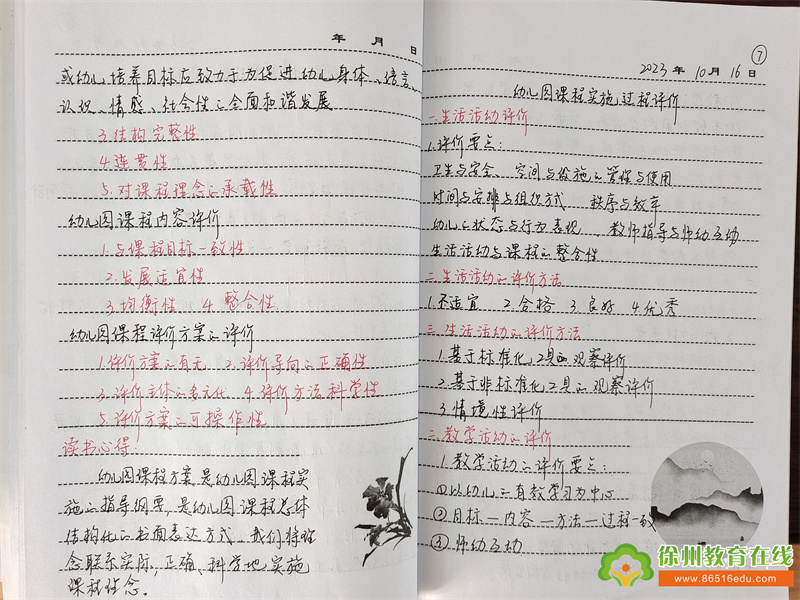 年 月 日
或幼儿培养目标应致力于为促进幼儿身体、语言、
认识、情感、社会性的全面和谐发展
3.结构完整性
4.连贯性
5.对课程理念的承载性
幼儿园课程内容评价
1.与课程目标一致性
2.发展适宜性
3.均衡性 4.整合性
幼儿园课程评价方案的评价
1.评价方案的有无 2.评价导向的正确性
3.评价主体的多元化 4.评价方法科学性
5.评价方案的可操作性
读书心得:
幼儿园课程方案是幼儿园课程实
施的指导纲要,是幼儿园课程总体
结构化的书面表达方式。我们将理
念联系实际,正确、科学地实施
课程理念。
⑦
2023年 10月 16日
幼儿园课程实施过程评价
一.生活活动评价
1.评价要点:
卫生与安全、空间与设施的管理与使用
时间与安排与组织方式 秩序与效率
幼儿的状态与行为表现、教师指导与师幼互动
生活活动与课程的整合性
二.生活活动的评价方法
1.不适宜 2.合格 3.良好 4.优秀
三.生活活动的评价方法
1.基于标准化工具的观察评价
2.基于非标准化工具的观察评价
3.情境性评价
二.教学活动的评价
1.教学活动的评价要点:
①以幼儿的有效学习为中心
②目标—内容—方法—过程一致
③师幼互动
徐州教育在线
www.86516edu.com